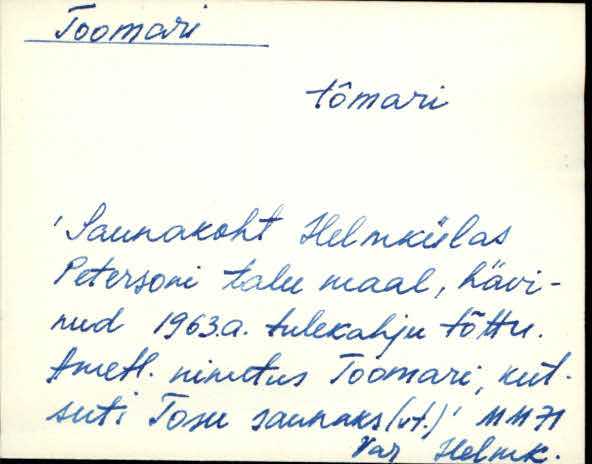 Toomari
tômari
'Saunakoht Helmkülas
Petersoni talu maal, hävi-
nud 1963.a. tulekahju tõttu.
Ametl. nimetus Toomari, kut-
suti Tosu saunaks (vt.)' MM 71
Var Helmk.